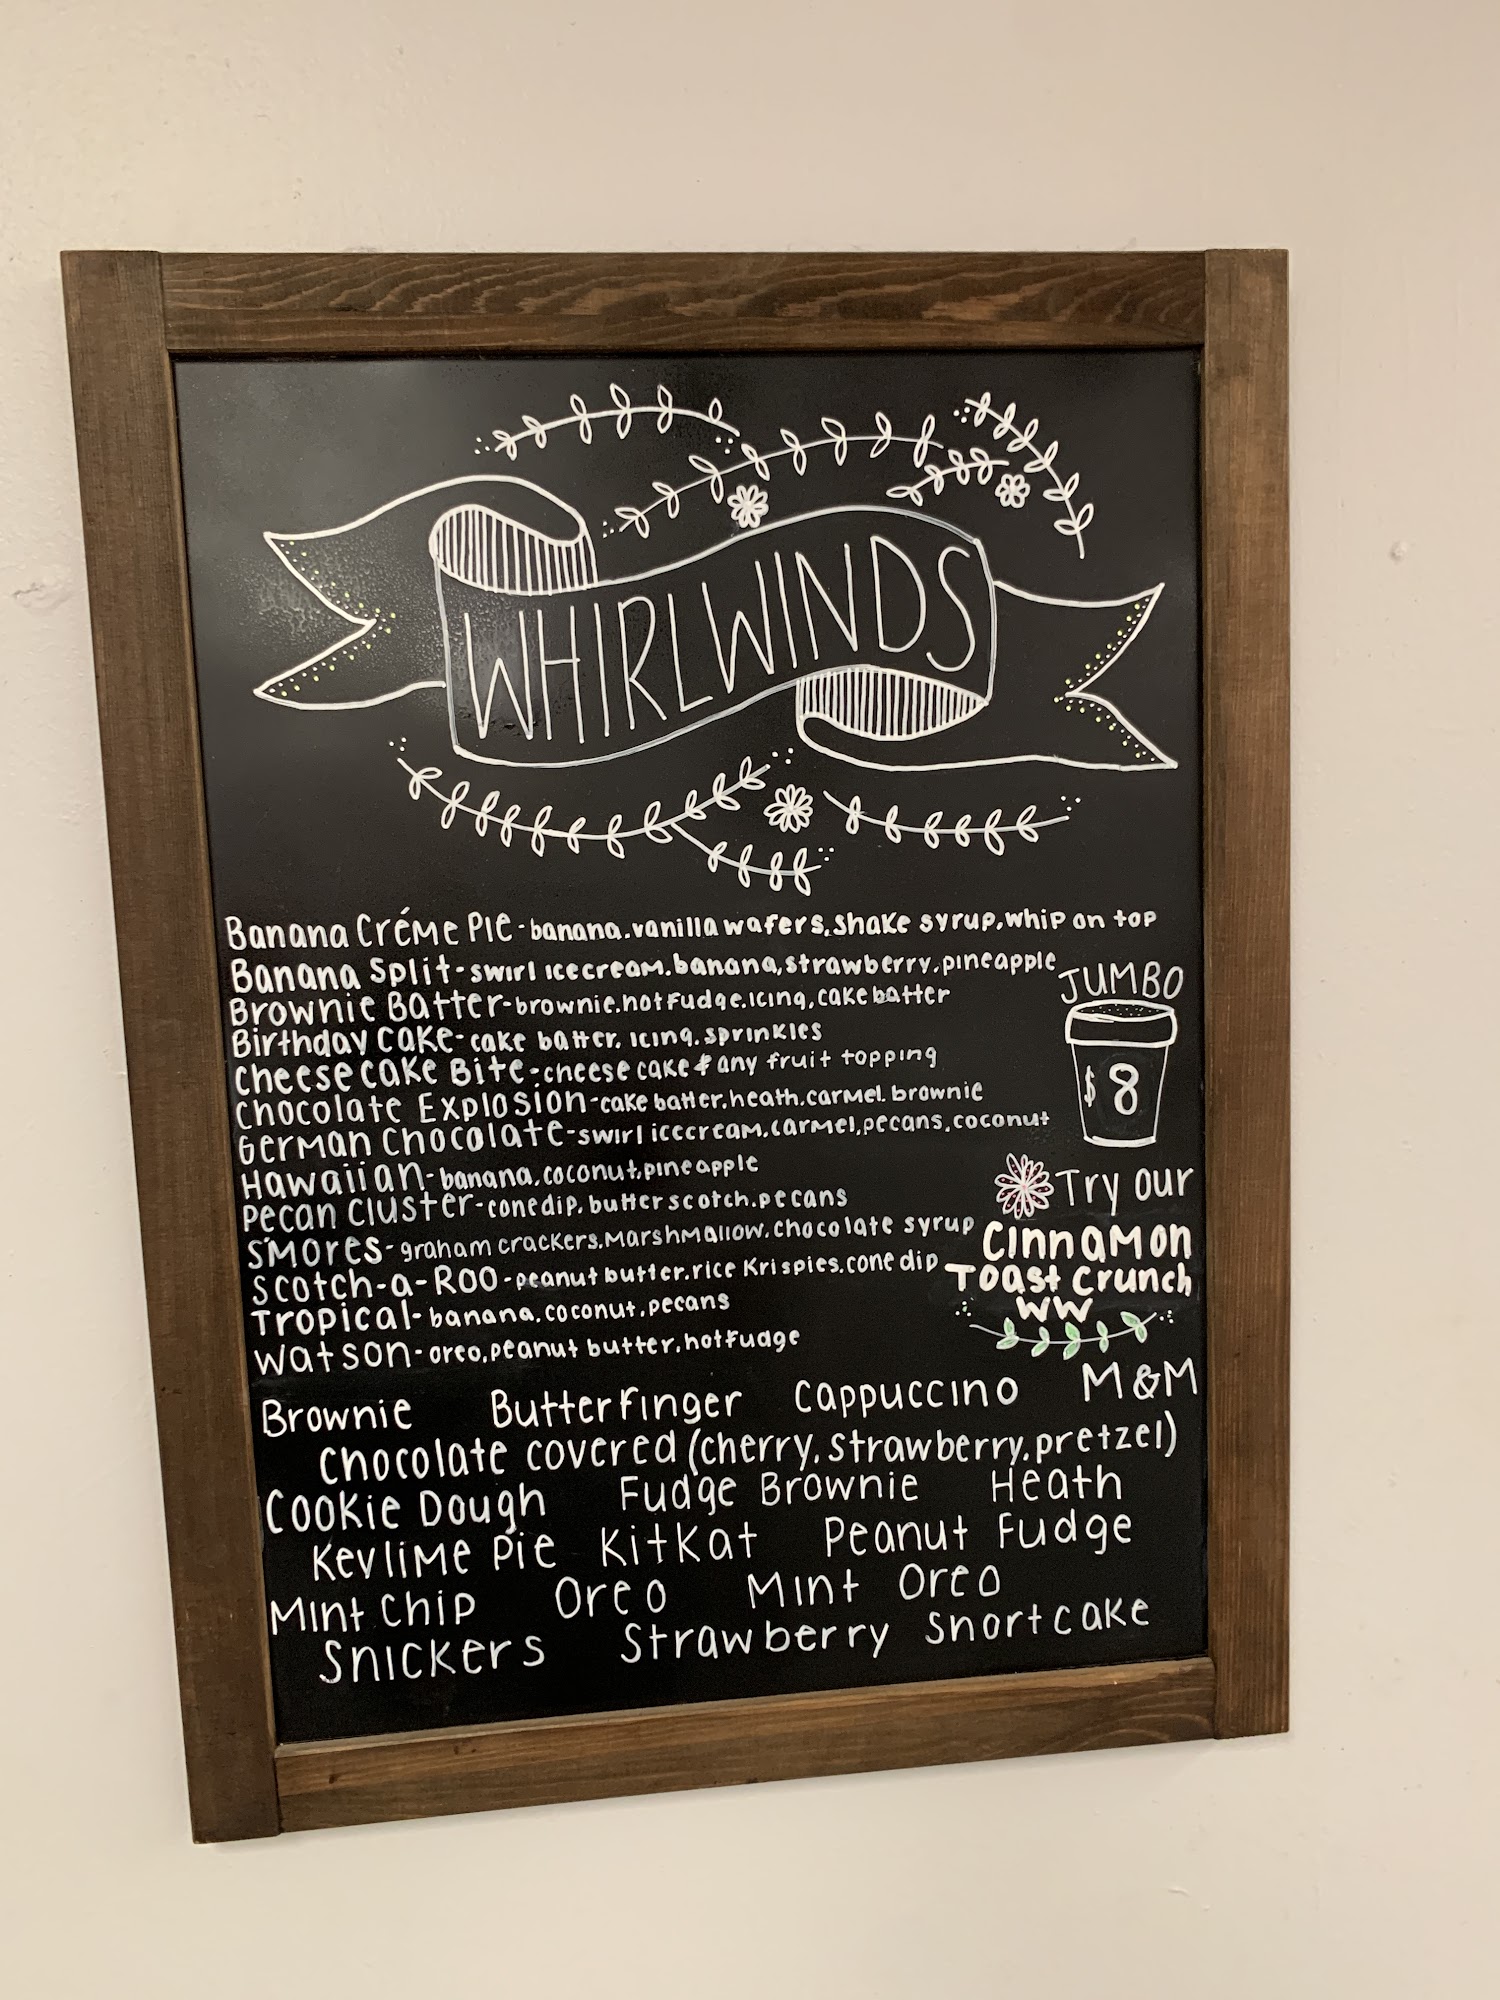 WHIRLWINDS
Banana Créme Pie - banana, vanilla wafers, shake syrup, whip on top
Banana Split - swirl icecream, banana, strawberry, pineapple
Brownie Batter - brownie, hot fudge, icing, cake batter
Birthday Cake - cake batter, icing, sprinkles
Cheesecake Bite - cheesecake & any fruit topping
Chocolate Explosion - cake batter, heath, carmel, brownie
German Chocolate - swirl icecream, carmel, pecans, coconut
Hawaiian - banana, coconut, pineapple
Pecan Cluster - cone dip, butterscotch, pecans
S'mores - graham crackers, marshmallow, chocolate syrup
Scotch-a-Roo - peanut butter, rice Krispies, cone dip
Tropical - banana, coconut, pecans
Watson - oreo, peanut butter, hot fudge
JUMBO
$8
Try our
Cinnamon
Toast Crunch
WW
Brownie Butterfinger Cappuccino M&M
Chocolate covered (cherry, strawberry, pretzel)
Cookie Dough Fudge Brownie Heath
Keylime Pie KitKat Peanut Fudge
Mint Chip Oreo Mint Oreo
Snickers Strawberry Shortcake